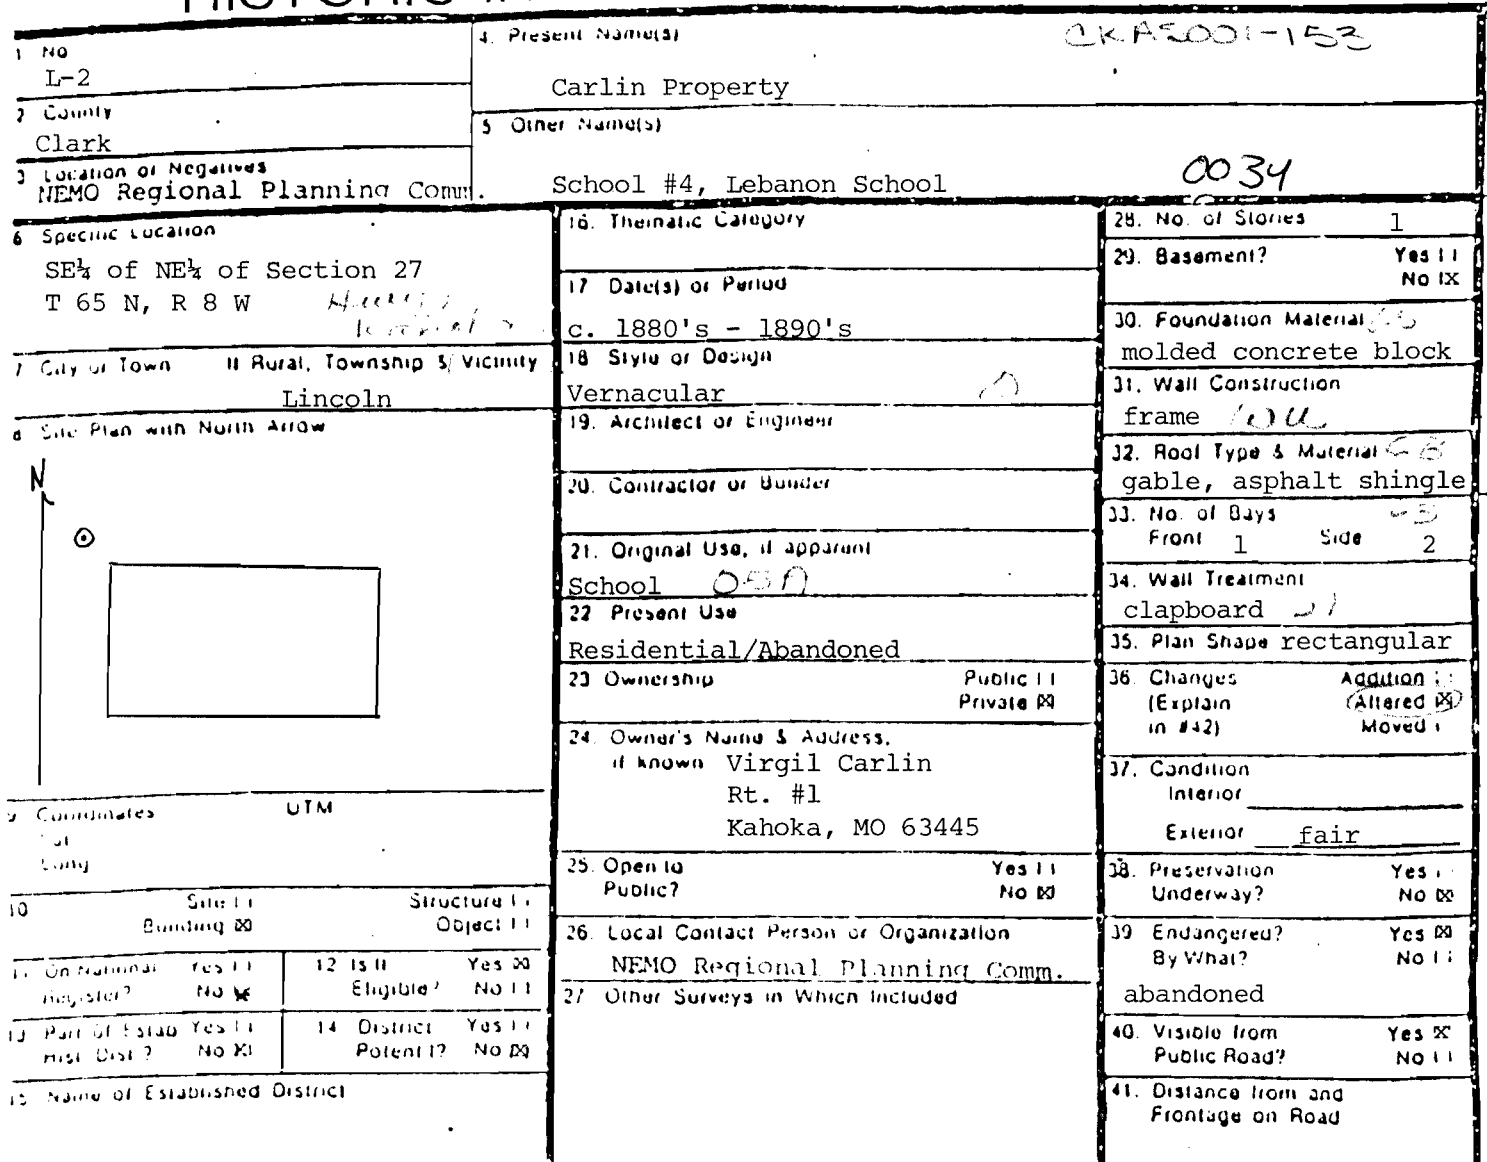 1 No
L-2
2 County
Clark
3 Location of Negatives
NEMO Regional Planning Comm.
4. Present Name(s)
CKAS001-153
Carlin Property
5 Other Name(s)
0034
School #4, Lebanon School
6 Specific Location
SE¼ of NE¼ of Section 27
T 65 N, R 8 W
7 City or Town If Rural, Township & Vicinity
Lincoln
8 Site Plan with North Arrow
N
9 Coordinates UTM
Lat
Long
10 Site [ ] Structure [ ]
Building [X] Object [ ]
11 On National Yes [ ]
Register? No [X]
12 Is It Yes [X]
Eligible? No [ ]
13 Part of Estab Yes [ ]
Hist. Dist.? No [X]
14 District Yes [ ]
Potent'l? No [X]
15 Name of Established District
16. Thematic Category
17 Date(s) or Period
c. 1880's - 1890's
18 Style or Design
Vernacular
19. Architect or Engineer
20. Contractor or Builder
21. Original Use, if apparent
School 05A
22 Present Use
Residential/Abandoned
23 Ownership Public [ ]
Private [X]
24. Owner's Name & Address,
if known Virgil Carlin
Rt. #1
Kahoka, MO 63445
25. Open to Yes [ ]
Public? No [X]
26. Local Contact Person or Organization
NEMO Regional Planning Comm.
27 Other Surveys in Which Included
28. No. of Stories 1
29. Basement? Yes [ ]
No [X]
30. Foundation Material
molded concrete block
31. Wall Construction
frame
32. Roof Type & Material GB
gable, asphalt shingle
33. No. of Bays
Front 1 Side 2
34. Wall Treatment
clapboard 21
35. Plan Shape rectangular
36. Changes Addition [ ]
(Explain Altered [X]
in #42) Moved [ ]
37. Condition
Interior
Exterior fair
38. Preservation Yes [ ]
Underway? No [X]
39 Endangered? Yes [X]
By What? No [ ]
abandoned
40. Visible from Yes [X]
Public Road? No [ ]
41. Distance from and
Frontage on Road